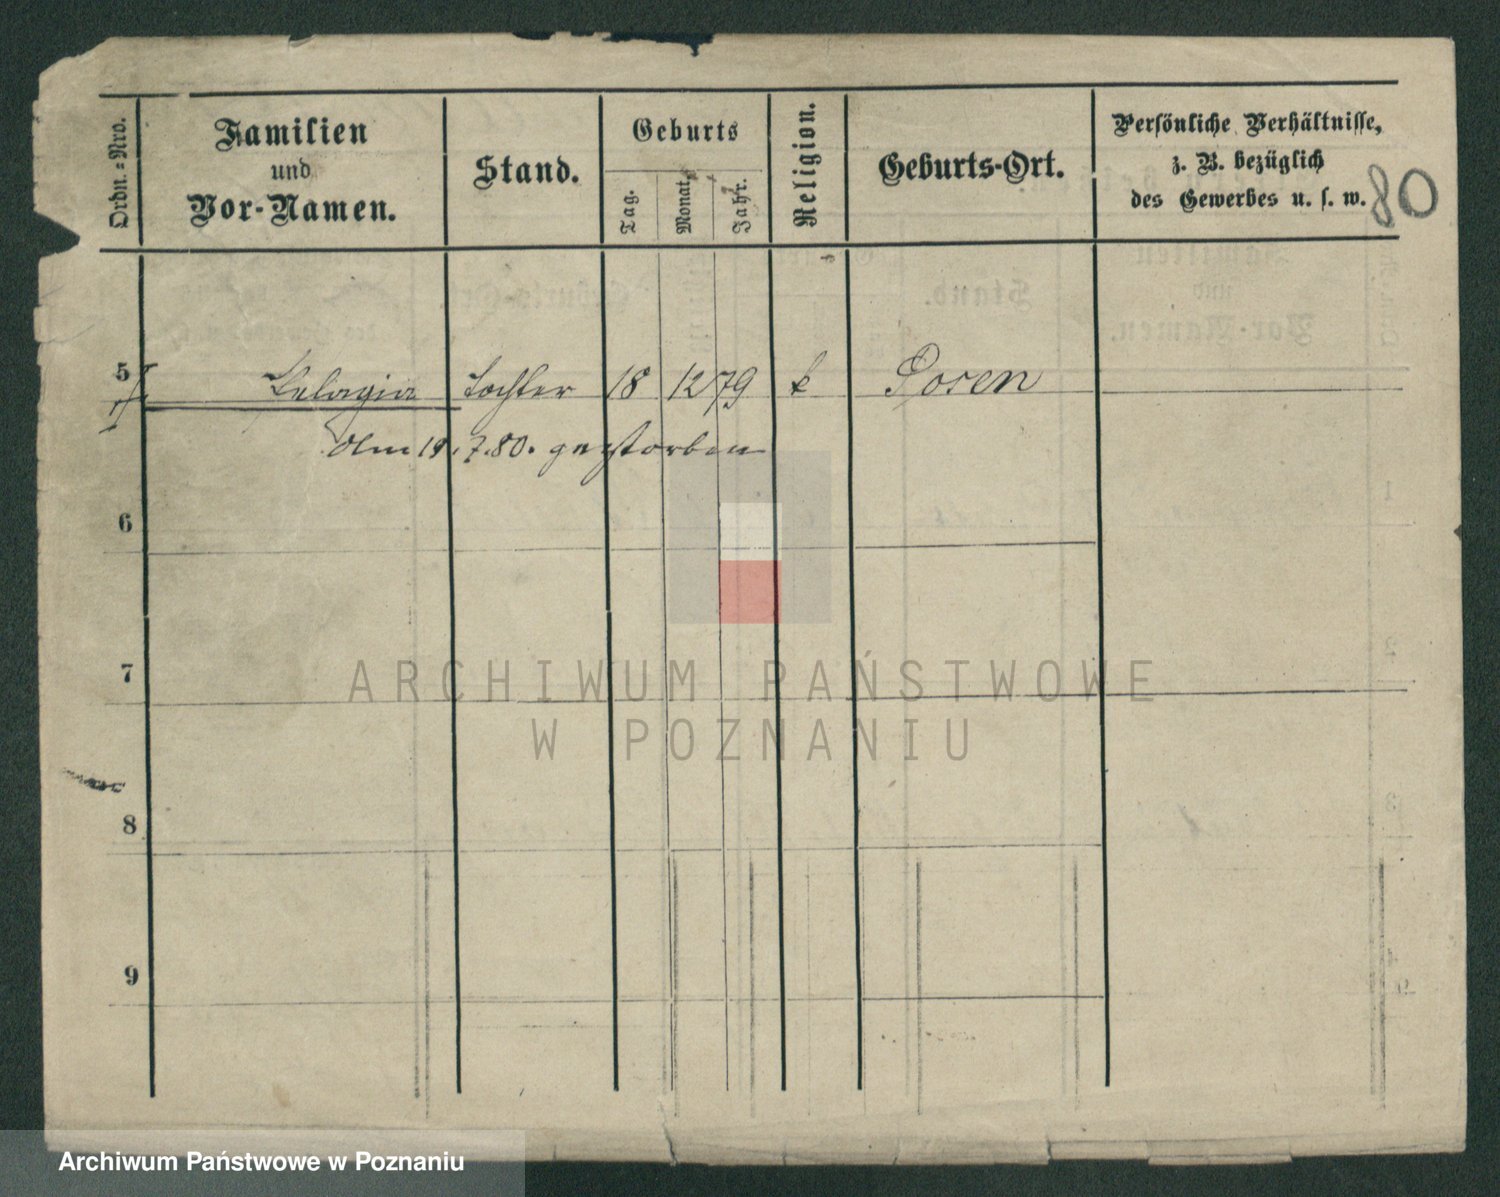 Ordn.=Nro.
Familien
und
Vor-Namen.
Stand.
Geburts
Tag.
Monat.
Jahr.
Religion.
Geburts-Ort.
Persönliche Verhältnisse,
z. B. bezüglich
des Gewerbes u. s. w.
80
5 Pelagia Tochter 18 12 79 k Posen
Am 19.7.80. gestorben
6
7
ARCHIWUM PAŃSTWOWE
W POZNANIU
8
9
Archiwum Państwowe w Poznaniu